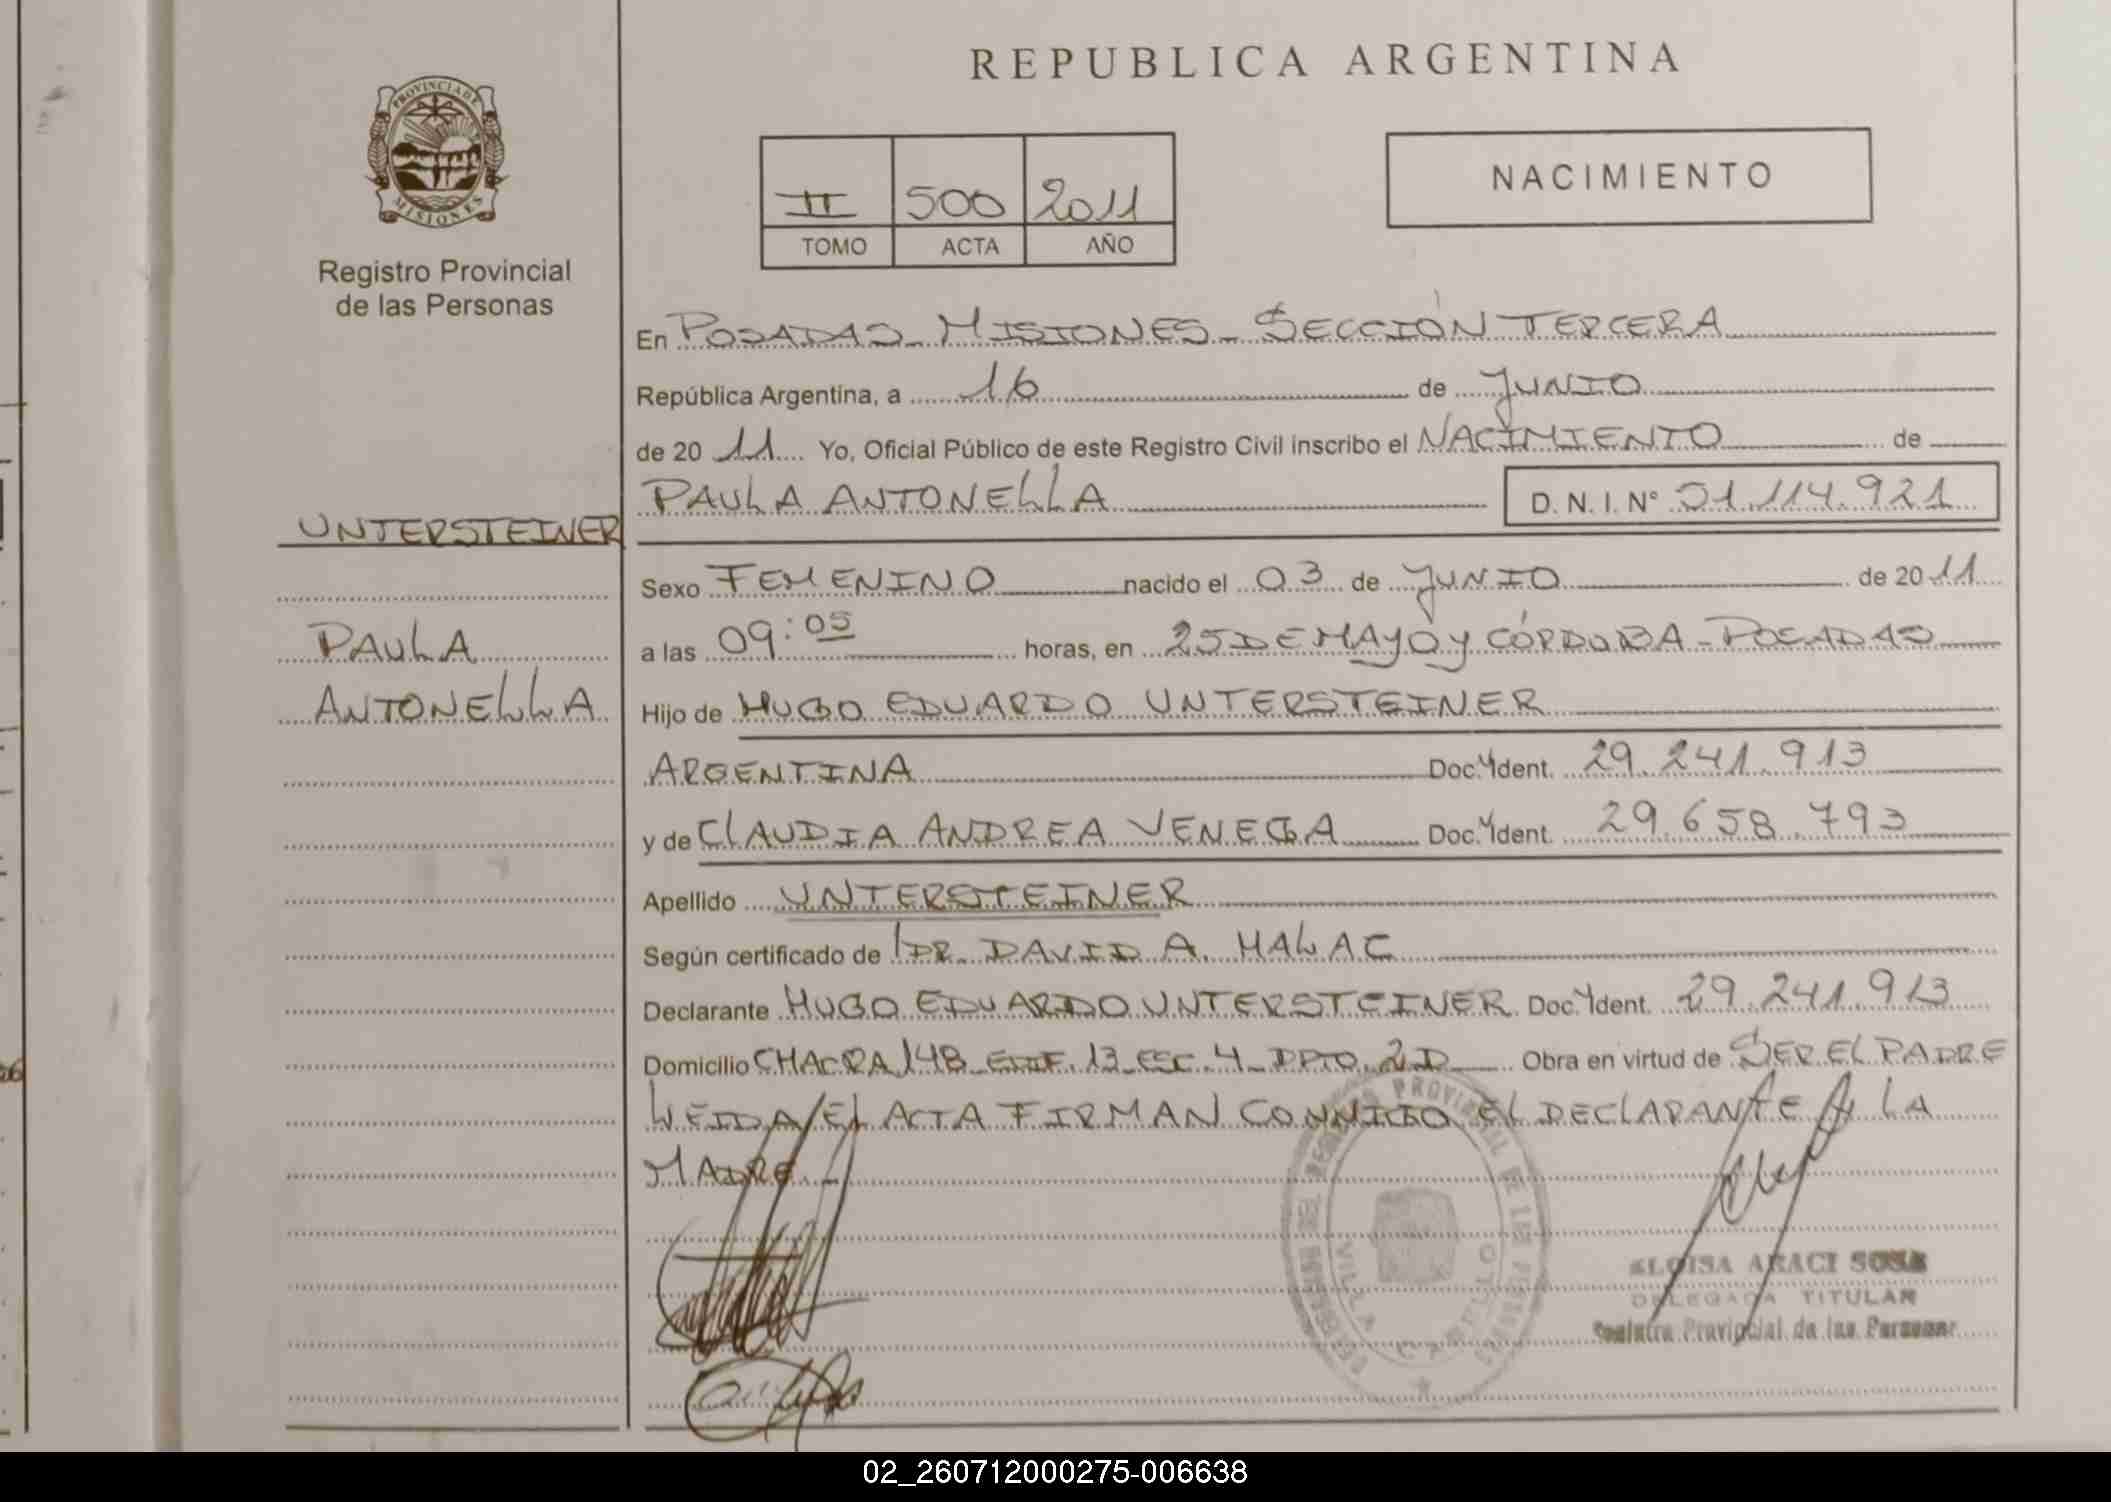 REPUBLICA ARGENTINA
PROVINCIA DE
MISIONES
Registro Provincial
de las Personas
II 500 2011
TOMO ACTA AÑO
NACIMIENTO
En POSADAS - MISIONES - SECCIÓN TERCERA
República Argentina, a 16 de JUNIO
de 20 11 Yo, Oficial Público de este Registro Civil inscribo el NACIMIENTO de
PAULA ANTONELLA D. N. I. N° 51.114.921
UNTERSTEINER
PAULA
ANTONELLA
Sexo FEMENINO nacido el 03 de JUNIO de 20 11
a las 09:05 horas, en 25 DE MAYO y CÓRDOBA - POSADAS
Hijo de HUGO EDUARDO UNTERSTEINER
ARGENTINA Doc. Ident. 29.241.913
y de CLAUDIA ANDREA VENEGA Doc. Ident. 29.658.793
Apellido UNTERSTEINER
Según certificado de DR. DAVID A. HALAC
Declarante HUGO EDUARDO UNTERSTEINER Doc. Ident. 29.241.913
Domicilio CHACRA 148 EDIF. 13 ESC. 4 DPTO. 2D Obra en virtud de SER EL PADRE
LEIDA EL ACTA FIRMAN CONMIGO EL DECLARANTE Y LA
MADRE
REGISTRO PROVINCIAL DE LAS PERSONAS
VILLA CABELLO
ELOISA ARACI SOSA
DELEGADA TITULAR
Registro Provincial de las Personas
02_260712000275-006638